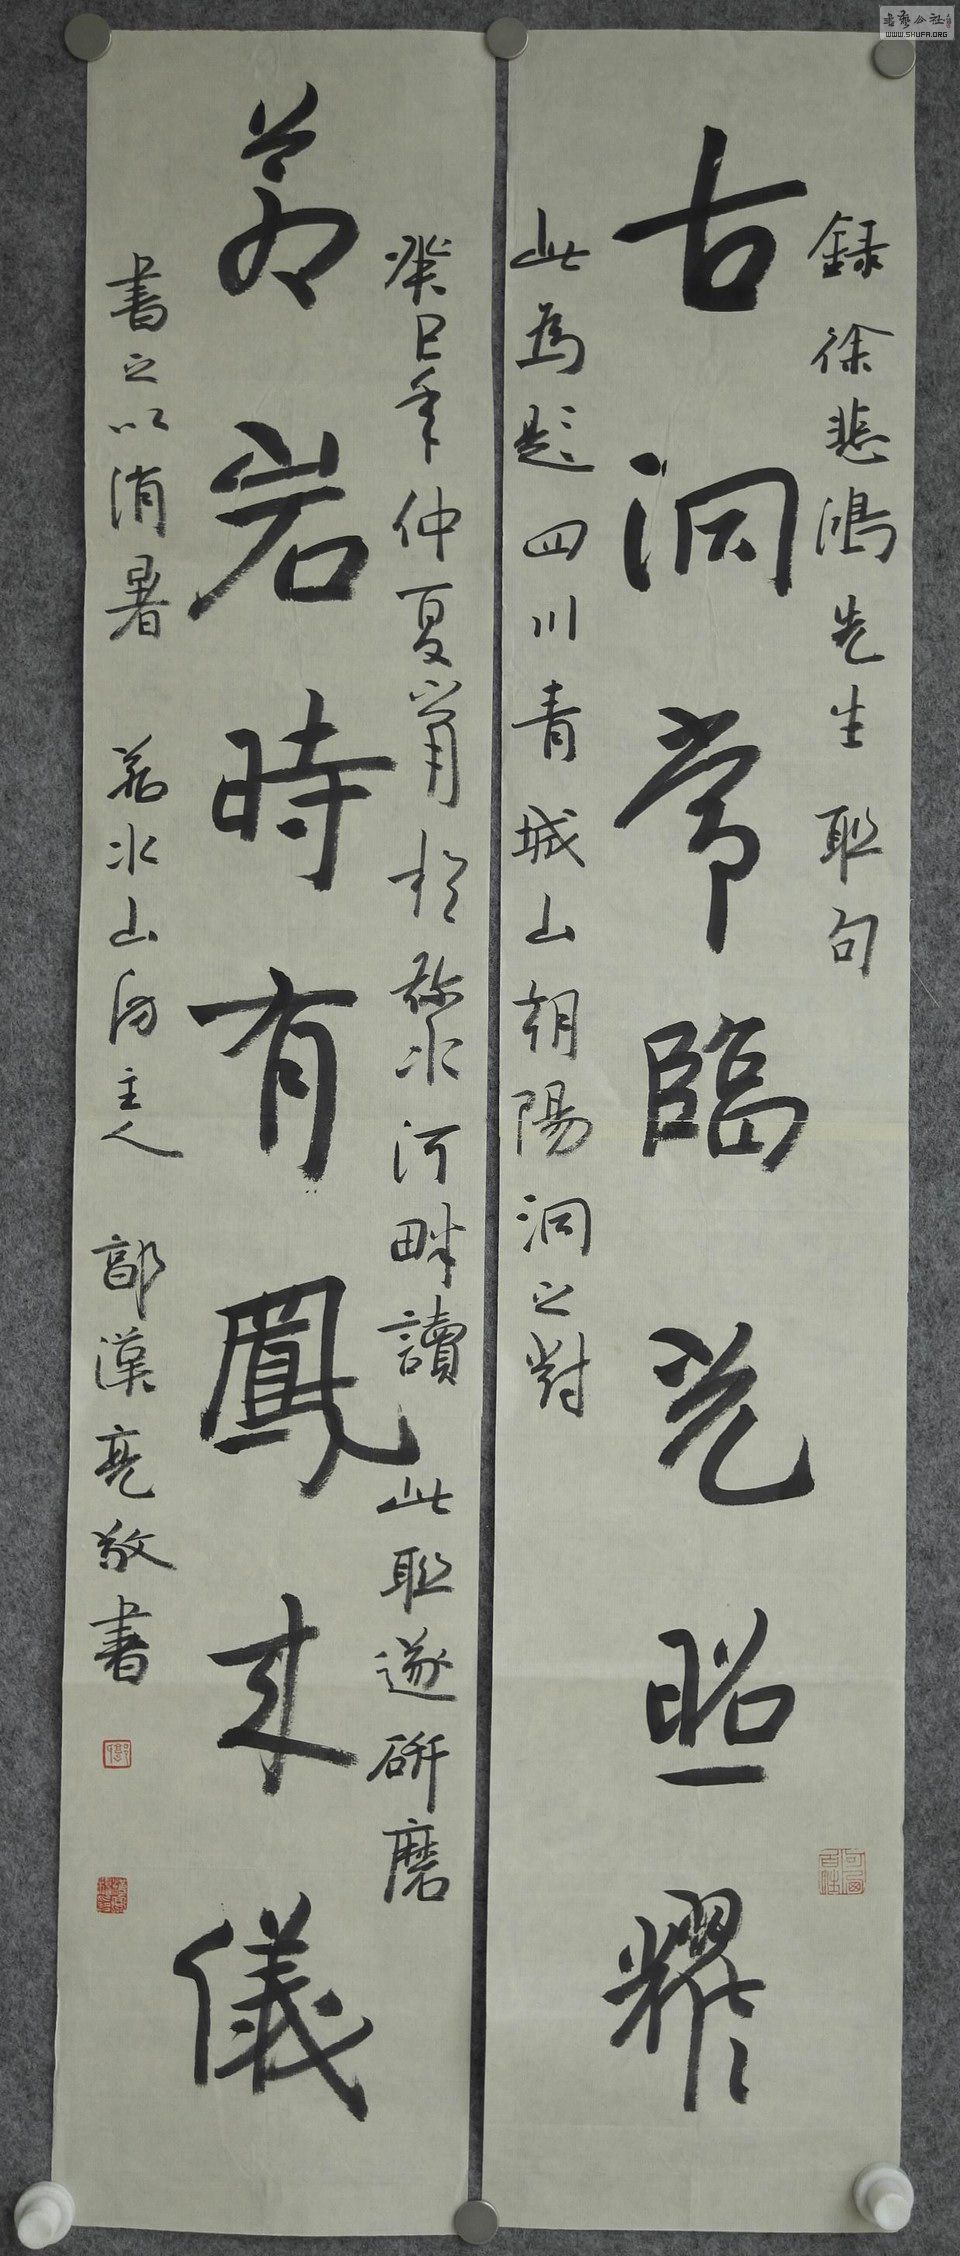 録徐悲鴻先生联句
古洞常臨光照耀
此為題四川青城山朝陽洞之對
癸巳年仲夏宵於弥水河畔讀此联遂研磨
蒼岩時有鳳来儀
書之以消暑 若水山房主人 郭漢亮敬書
WWW.SHUFA.ORG